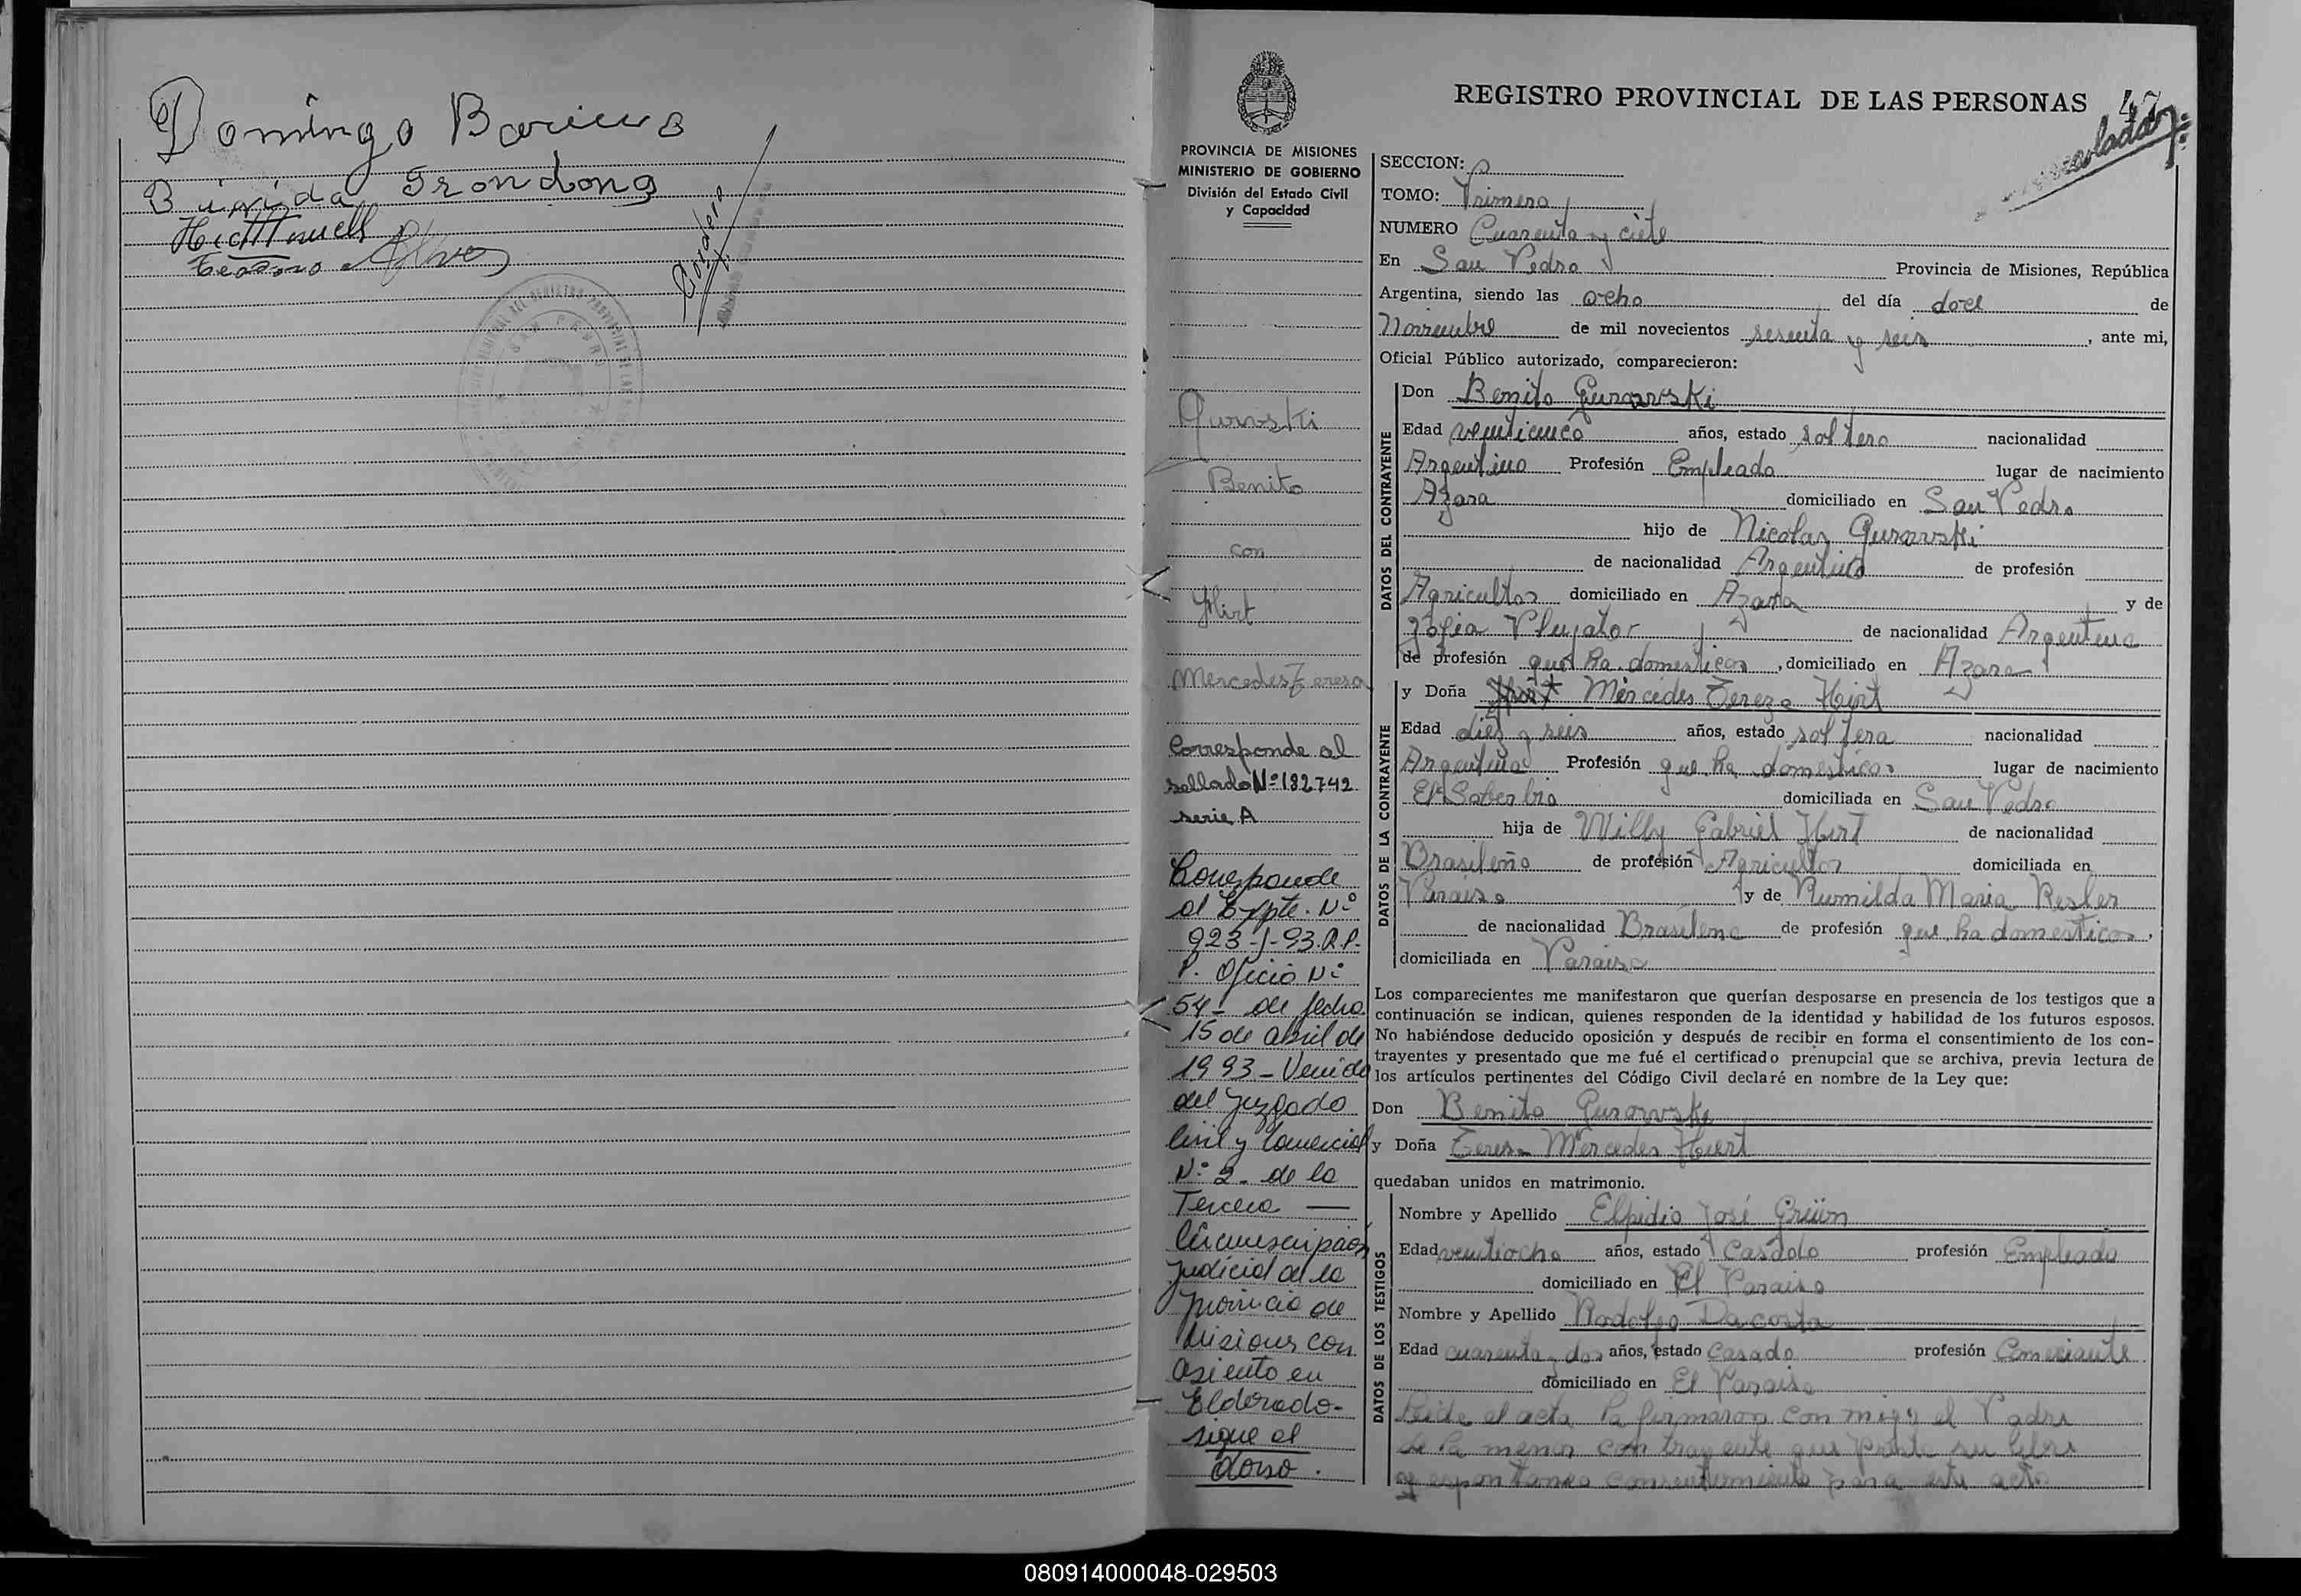 Domingo
Teodoro
REGISTRO PROVINCIAL DE LAS PERSONAS 47
PROVINCIA DE MISIONES
MINISTERIO DE GOBIERNO
División del Estado Civil
y Capacidad
Gurovski
Benito
con
Hirt
Mercedes Teresa
Corresponde al
sellado Nº 182742
serie A
Corresponde
al Expte. Nº
923-J-93.R.P.
P. Oficio Nº
54- de fecha
15 de abril de
1993 - Venido
del Juzgado
Civil y Comercial
Nº 2. de la
Tercera
Circunscripción
Judicial de la
provincia de
Misiones con
asiento en
Eldorado-
sigue al
dorso.
SECCION:
TOMO: Primero
NUMERO Cuarenta y ciete
En San Pedro Provincia de Misiones, República
Argentina, siendo las ocho del día doce de
Noviembre de mil novecientos sesenta y seis, ante mi,
Oficial Público autorizado, comparecieron:
DATOS DEL CONTRAYENTE
Don Benito Gurowski
Edad venticinco años, estado soltero nacionalidad
Argentino Profesión Empleado lugar de nacimiento
Azara domiciliado en San Pedro
hijo de Nicolas Gurowski
de nacionalidad Argentino de profesión
Agricultor domiciliado en Azara y de
Zofia de nacionalidad Argentina
de profesión queha. domesticos, domiciliado en Azara
DATOS DE LA CONTRAYENTE
y Doña Mercedes Tereza Hirt
Edad diez y seis años, estado soltera nacionalidad
Argentina Profesión que.ha domesticos lugar de nacimiento
El Soberbio domiciliada en San Pedro
hija de Willy Gabriel Hirt de nacionalidad
Brasileño de profesión Agricultor domiciliada en
Paraiso y de Rumilda Maria Resler
de nacionalidad Brasileña de profesión que.ha domesticos,
domiciliada en Paraiso
Los comparecientes me manifestaron que querían desposarse en presencia de los testigos que a
continuación se indican, quienes responden de la identidad y habilidad de los futuros esposos.
No habiéndose deducido oposición y después de recibir en forma el consentimiento de los con-
trayentes y presentado que me fué el certificado prenupcial que se archiva, previa lectura de
los artículos pertinentes del Código Civil declaré en nombre de la Ley que:
Don Benito Gurowski
y Doña Teresa Mercedes Hiert
quedaban unidos en matrimonio.
DATOS DE LOS TESTIGOS
Nombre y Apellido Elpidio José Grüün
Edad ventiocho años, estado Casado profesión Empleado
domiciliado en El Paraiso
Nombre y Apellido Rodolfo Dacosta
Edad cuarenta y dos años, estado Casado profesión Comerciante
domiciliado en El Paraiso
Leide el acta la firmaron con migo el Padre
de la menor contrayente que presta su libre
y espontanea consentimiento para este acto
080914000048-029503